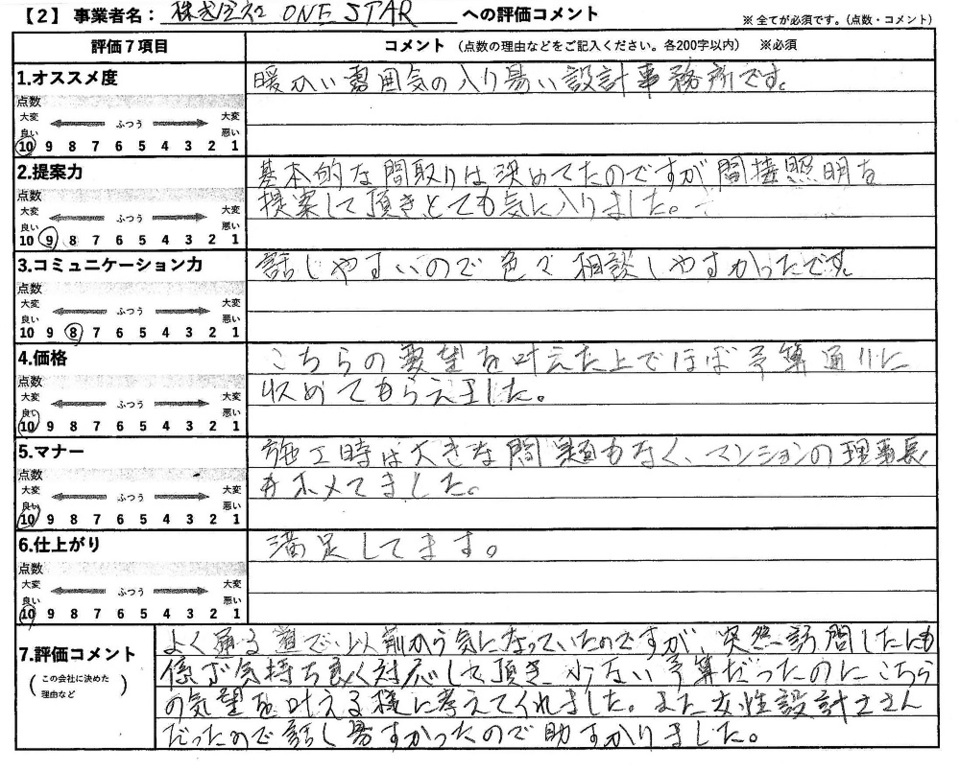 【2】事業者名： 株式会社 ONE STAR への評価コメント
※ 全てが必須です。（点数・コメント）
評価７項目
コメント （点数の理由などをご記入ください。各200字以内） ※必須
1.オススメ度
点数
大変 ふつう 大変
良い 悪い
10 9 8 7 6 5 4 3 2 1
暖かい雰囲気の入り易い設計事務所です。
2.提案力
点数
大変 ふつう 大変
良い 悪い
10 9 8 7 6 5 4 3 2 1
基本的な間取りは決めてたのですが間接照明を
提案して頂きとても気に入りました。
3.コミュニケーション力
点数
大変 ふつう 大変
良い 悪い
10 9 8 7 6 5 4 3 2 1
話しやすいので色々相談しやすかったです。
4.価格
点数
大変 ふつう 大変
良い 悪い
10 9 8 7 6 5 4 3 2 1
こちらの要望を叶えた上でほぼ予算通りに
収めてもらえました。
5.マナー
点数
大変 ふつう 大変
良い 悪い
10 9 8 7 6 5 4 3 2 1
施工時は大きな問題もなく、マンションの理事長
もホメてました。
6.仕上がり
点数
大変 ふつう 大変
良い 悪い
10 9 8 7 6 5 4 3 2 1
満足してます。
7.評価コメント
（この会社に決めた
理由など）
よく通る道で、以前から気になっていたのですが、突然訪問したにも
係ず気持ち良く対応して頂き、少ない予算だったのにこちら
の気望を叶える様に考えてくれました。また女性設計士さん
だったので話し易すかったので助すかりました。